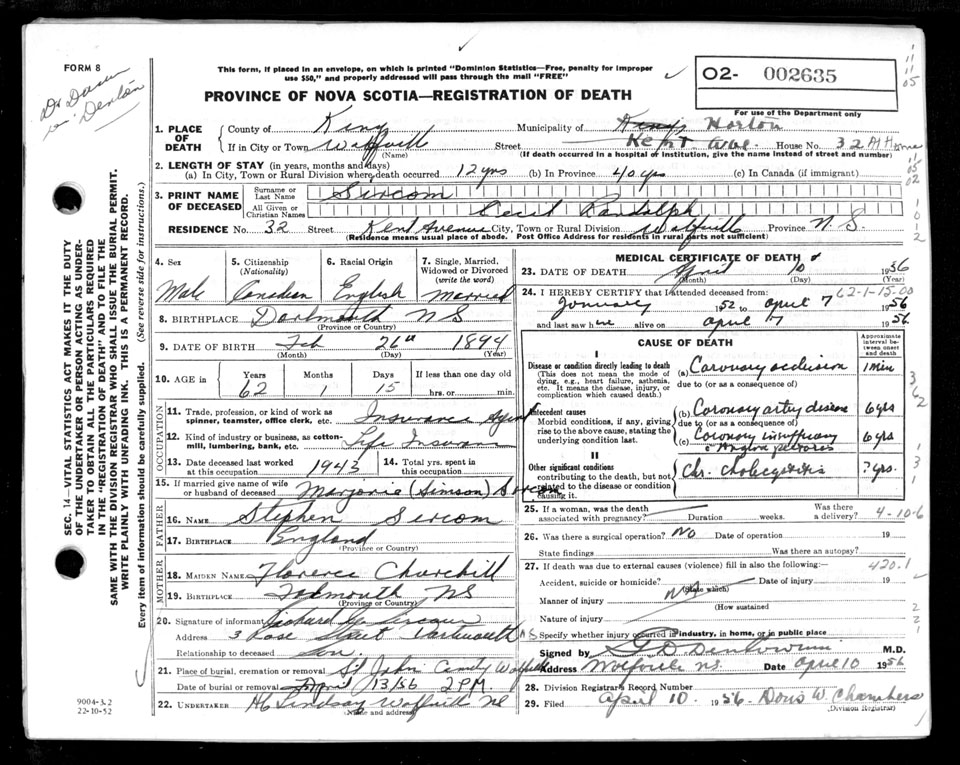 FORM 8
This form, if placed in an envelope, on which is printed "Dominion Statistics—Free, penalty for improper
use $50," and properly addressed will pass through the mail "FREE"
02- 002635
PROVINCE OF NOVA SCOTIA—REGISTRATION OF DEATH
For use of the Department only
Denton
1. PLACE OF DEATH
County of Kings
Municipality of Kings Horton
If in City or Town Wolfville (Name)
Street Kent Ave House No. 32 At Home
(If death occurred in a hospital or institution, give the name instead of street and number)
2. LENGTH OF STAY (in years, months and days)
(a) In City, Town or Rural Division where death occurred 12 yrs (b) In Province 40 yrs (c) In Canada (if immigrant)
3. PRINT NAME OF DECEASED
Surname or Last Name Sercom
All Given or Christian Names Cecil Randolph
RESIDENCE No. 32 Street Kent Avenue City, Town or Rural Division Wolfville Province N.S.
(Residence means usual place of abode. Post Office Address for residents in rural parts not sufficient)
4. Sex Male
5. Citizenship (Nationality) Canadian
6. Racial Origin English
7. Single, Married, Widowed or Divorced (write the word) Married
8. BIRTHPLACE Dartmouth NS
(Province or Country)
9. DATE OF BIRTH Feb 26th 1894
(Month) (Day) (Year)
10. AGE in Years 62 Months 1 Days 15 If less than one day old
hrs. or min.
OCCUPATION
11. Trade, profession, or kind of work as
spinner, teamster, office clerk, etc. Insurance Agent
12. Kind of industry or business, as cotton-
mill, lumbering, bank, etc. Life Insurance
13. Date deceased last worked
at this occupation 1943
14. Total yrs. spent in
this occupation
15. If married give name of wife
or husband of deceased Marjorie (Simson) Sercom
FATHER
16. NAME Stephen Sercom
17. BIRTHPLACE England
(Province or Country)
MOTHER
18. MAIDEN NAME Florence Churchill
19. BIRTHPLACE NS
(Province or Country)
20. Signature of informant Richard Sercom
Address 3 Rose Street Dartmouth NS
Relationship to deceased Son.
21. Place of burial, cremation or removal St John Cemetery Wolfville
Date of burial or removal April 13/56 2 PM.
22. UNDERTAKER Lindsay Wolfville NS
(Name and address)
MEDICAL CERTIFICATE OF DEATH
23. DATE OF DEATH April 10 1956
(Month) (Day) (Year)
24. I HEREBY CERTIFY that I attended deceased from: 62-1-15-00
January 1952 to April 7 1956
and last saw h alive on April 7 1956
CAUSE OF DEATH
Approximate interval between onset and death
I
Disease or condition directly leading to death
(This does not mean the mode of
dying, e.g., heart failure, asthenia,
etc. It means the disease, injury, or
complication which caused death.)
(a) Coronary occlusion 1 Min
due to (or as a consequence of)
Antecedent causes
Morbid conditions, if any, giving
rise to the above cause, stating the
underlying condition last.
(b) Coronary artery disease 6 yrs
due to (or as a consequence of)
(c) Coronary insufficiency 6 yrs
Angina pectoris
II
Other significant conditions
contributing to the death, but not
related to the disease or condition
causing it.
Chr. cholecystitis ? yrs.
25. If a woman, was the death
associated with pregnancy? Duration weeks. Was there
a delivery? 4-10-6
26. Was there a surgical operation? No Date of operation 19
State findings Was there an autopsy?
27. If death was due to external causes (violence) fill in also the following: 420.1
Accident, suicide or homicide? (State which) Date of injury 19
Manner of injury
(How sustained)
Nature of injury
Specify whether injury occurred in industry, in home, or in public place
Signed by M.D.
Address Wolfville NS. Date April 10 1956
28. Division Registrar's Record Number
29. Filed April 10. 1956. Doris W. Chambers
(Division Registrar)
9004-3.2
22-10-52
SEC. 14—VITAL STATISTICS ACT MAKES IT THE DUTY
OF THE UNDERTAKER OR PERSON ACTING AS UNDER-
TAKER TO OBTAIN ALL THE PARTICULARS REQUIRED
IN THE "REGISTRATION OF DEATH" AND TO FILE THE
SAME WITH THE DIVISION REGISTRAR WHO SHALL ISSUE THE BURIAL PERMIT.
WRITE PLAINLY WITH UNFADING INK. THIS IS A PERMANENT RECORD.
Every item of information should be carefully supplied. (See reverse side for instructions.)